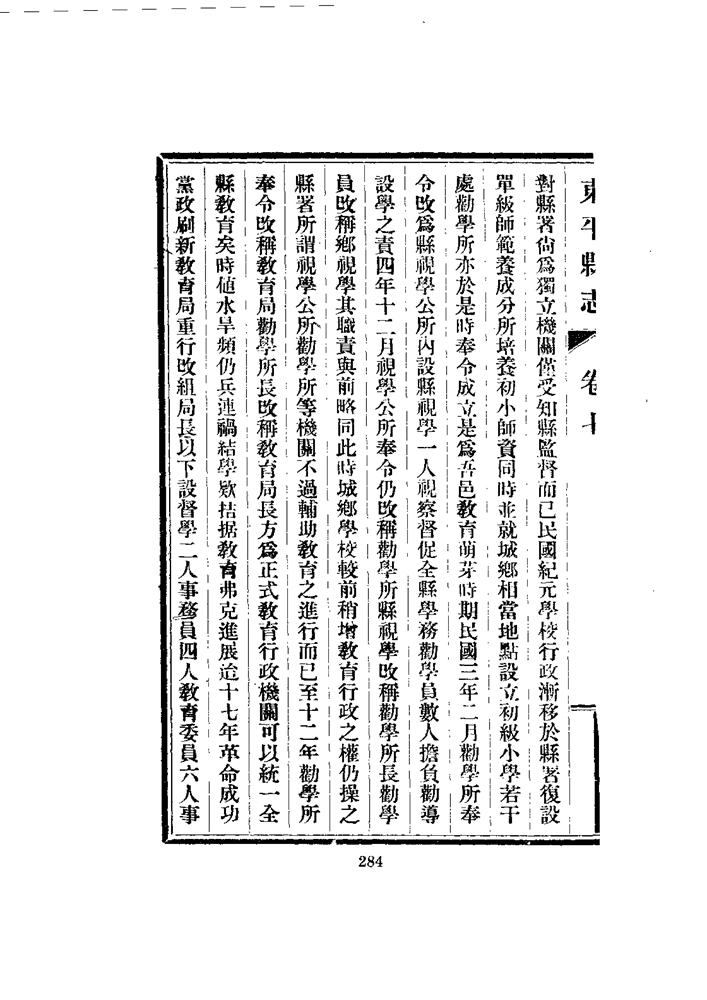 東平縣志 卷七
對縣署尙爲獨立機關僅受知縣監督而已民國紀元學校行政漸移於縣署復設
單級師範養成分所培養初小師資同時並就城鄉相當地點設立初級小學若干
處勸學所亦於是時奉令成立是爲吾邑敎育萌芽時期民國三年二月勸學所奉
令改爲縣視學公所內設縣視學一人視察督促全縣學務勸學員數人擔負勸導
設學之責四年十二月視學公所奉令仍改稱勸學所縣視學改稱勸學所長勸學
員改稱鄉視學其職責與前略同此時城鄉學校較前稍增敎育行政之權仍操之
縣署所謂視學公所勸學所等機關不過輔助敎育之進行而已至十二年勸學所
奉令改稱敎育局勸學所長改稱敎育局長方爲正式敎育行政機關可以統一全
縣敎育矣時値水旱頻仍兵連禍結學欵拮据敎育弗克進展迨十七年革命成功
黨政刷新敎育局重行改組局長以下設督學二人事務員四人敎育委員六人事
284